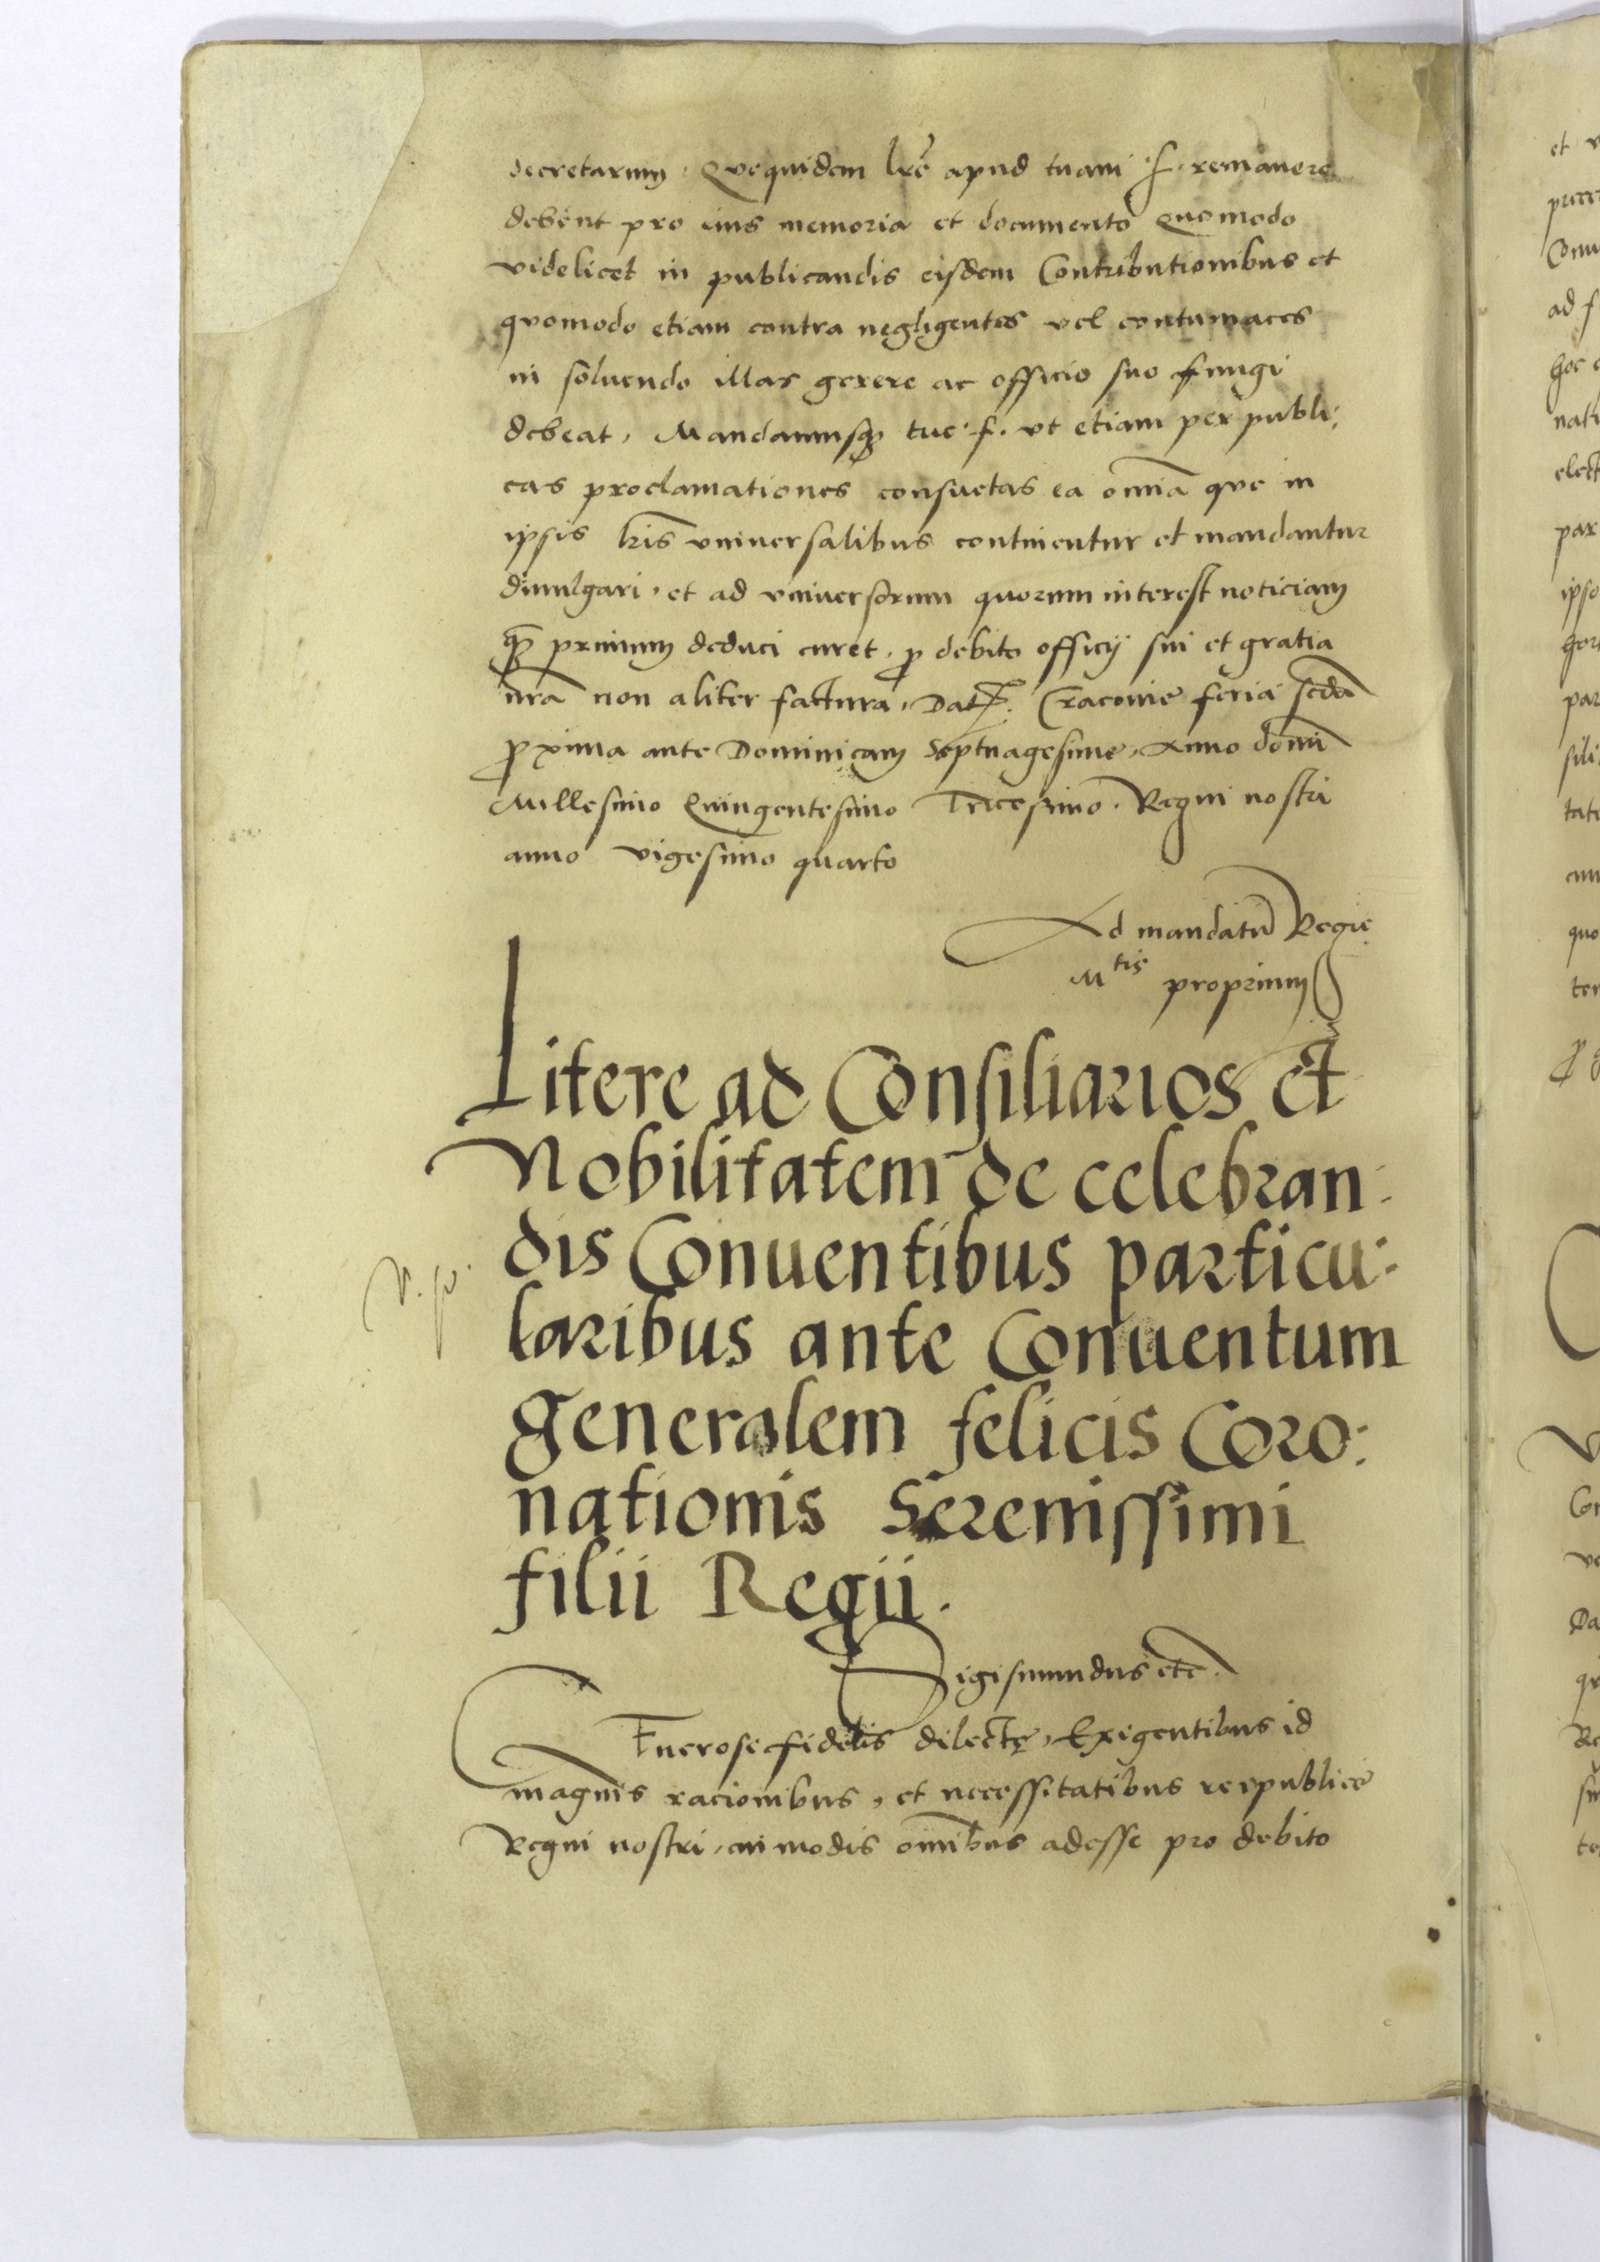 decretarum, Quequidem lrẽ apud tuam f. remanere
debent pro eius memoria et documento Quomodo
videlicet in publicandis eisdem Contributionibus et
quomodo etiam contra negligentes vel contumaces
in soluendo illas gerere ac officio suo fungi
debeat, Mandamusq tue f. vt etiam per publi:
cas proclamationes consuetas ea om̃ia que in
ipsis lr̃is vniuersalibus continentur et mandantur
diuulgari, et ad vniuersorum quorum interest noticiam
q̃ primum deduci curet, p debito officij sui et gratia
nr̃a non aliter factura, Dat. Cracouie feria scd̃a
proxima ante Dominicam Septuagesime, Anno domĩ
Millesimo Quingentesimo Tricesimo. Regni nostri
anno vigesimo quarto
Ad mandatũ Regie
M tis proprium
Litere ad Consiliarios et
Nobilitatem de celebran:
dis Conuentibus particu:
laribus ante Conuentum
generalem felicis Coro:
nationis Serenissimi
filii Regii.
Sigismundus etc̃.
Generose fidelis dilecte, Exigentibus id
magnis racionibus, et necessitatibus reipublice
Regni nostri, cui modis om̃ibus adesse pro debito